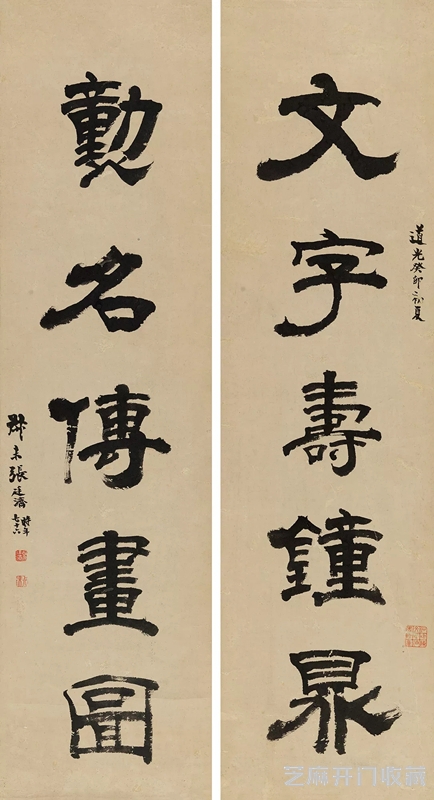 文字壽鐘鼎
道光癸卯初夏
勳名傳畫圖
叔未張廷濟時年七十六
芝麻开门收藏